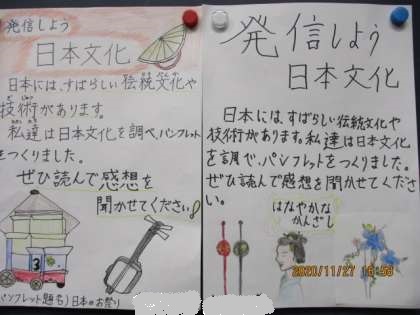 発信しよう
日本文化
日本には、すばらしい伝統文化や
技術があります。
私達は日本文化を調べ、パンフレット
をつくりました。
ぜひ読んで感想を
聞かせてください!
3
パンフレット題名)日本のお祭り
発信しよう
日本文化
日本には、すばらしい伝統文化や
技術があります。私達は日本文化
を調べ、パンフレットをつくりました。
ぜひ読んで感想を聞かせてくださ
い。
はなやかな
かんざし
2020/11/27 16:58